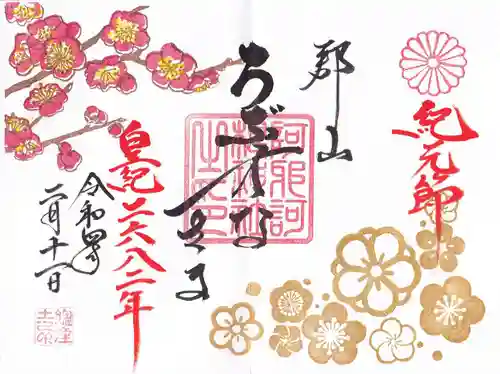 紀元節
郡山
うぶすな
阿邪訶
根神社
之印
皇紀二六八二年
令和四年
二月十一日